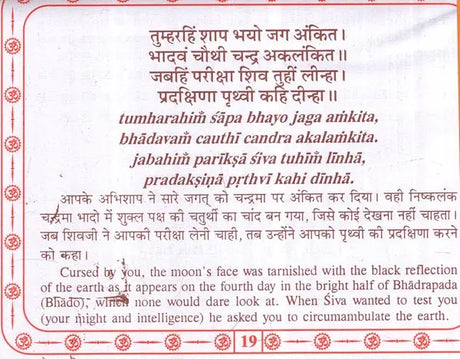 तुम्हरहिं शाप भयो जग अंकित।
भादवं चौथी चन्द्र अकलंकित।।
जबहिं परीक्षा शिव तुहीं लीन्हा।
प्रदक्षिणा पृथ्वी कहि दीन्हा।।
tumharahiṁ śāpa bhayo jaga aṁkita,
bhādavaṁ cauthī candra akalaṁkita.
jabahiṁ parīkṣā śiva tuhīṁ līnhā,
pradakṣiṇā pṛthvī kahi dīnhā.
आपके अभिशाप ने सारे जगत् को चन्द्रमा पर अंकित कर दिया। वही निष्कलंक
चन्द्रमा भादो में शुक्ल पक्ष की चतुर्थी का चांद बन गया, जिसे कोई देखना नहीं चाहता।
जब शिवजी ने आपकी परीक्षा लेनी चाही, तब उन्होंने आपको पृथ्वी की प्रदक्षिणा करने
को कहा।
Cursed by you, the moon's face was tarnished with the black reflection
of the earth as it appears on the fourth day in the bright half of Bhādrapada
(Bhādo), which none would dare look at. When Śiva wanted to test you
(your might and intelligence) he asked you to circumambulate the earth.
19